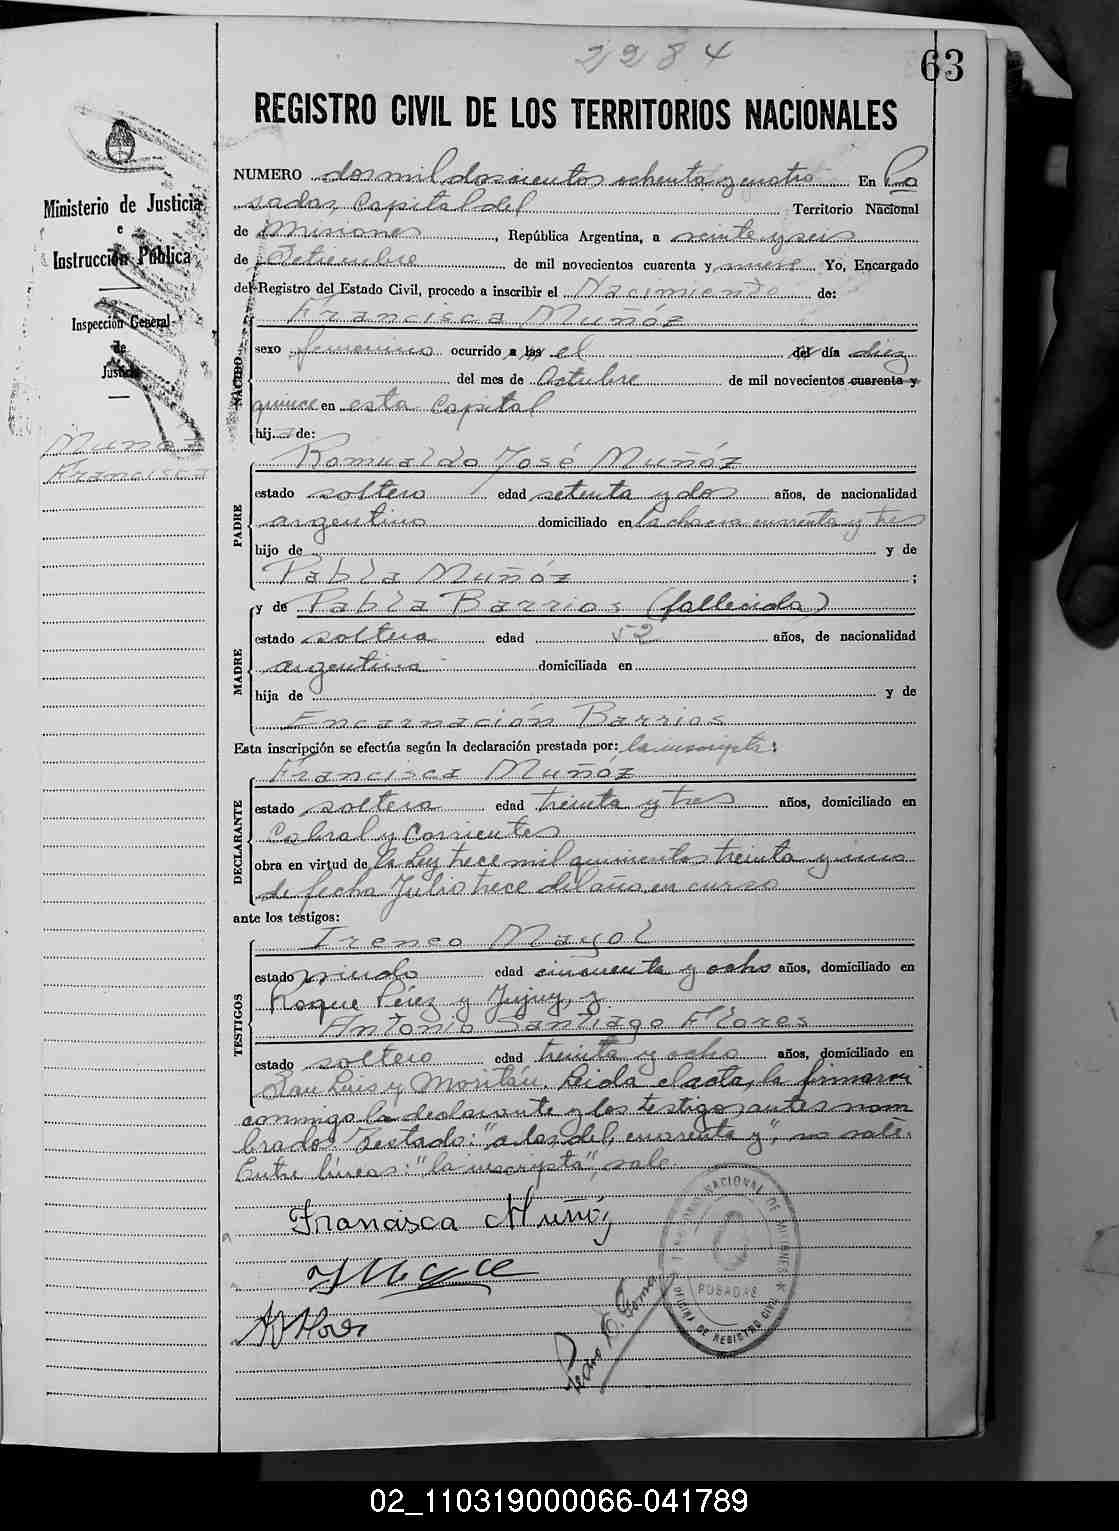 2284
63
REGISTRO CIVIL DE LOS TERRITORIOS NACIONALES
Ministerio de Justicia
e
Instrucción Pública
Inspección General
de
Justicia
Muñoz
Francisca
NUMERO dosmil doscientos ochenta y cuatro En Po
sadas, Capital del Territorio Nacional
de Misiones, República Argentina, a veinte y seis
de Setiembre de mil novecientos cuarenta y nueve Yo, Encargado
del Registro del Estado Civil, procedo a inscribir el Nacimiento de:
NACIDO
Francisca Muñóz
sexo femenino ocurrido a las el del día diez
del mes de Octubre de mil novecientos cuarenta y
quince en esta Capital
hij de:
PADRE
Romualdo José Muñóz
estado soltero edad setenta y dos años, de nacionalidad
argentino domiciliado en la chacra cuarenta y tres
hijo de y de
Pabla Muñóz ;
MADRE
y de Pabla Barrios (fallecida)
estado soltera edad 52 años, de nacionalidad
argentina domiciliada en
hija de y de
Encarnación Barrios
Esta inscripción se efectúa según la declaración prestada por: la inscripta:
DECLARANTE
Francisca Muñóz
estado soltera edad treinta y tres años, domiciliado en
Cabral y Corrientes
obra en virtud de la Ley trece mil quinientos treinta y uno
de fecha Julio trece del año en curso
ante los testigos:
TESTIGOS
Ireneo Mayol
estado viudo edad cincuenta y ocho años, domiciliado en
Roque Pérez y Jujuy, y
Antonio Santiago Flores
estado soltero edad treinta y ocho años, domiciliado en
San Luis y Moritán. Leida el acta, la firmaron
conmigo la declarante y los testigos antes nom
brados Testado: "a las del, cuarenta y", no vale.
Entre líneas: "la inscripta", vale.
Francisca Muñóz
Pedro
POSADAS
OFICINA DE REGISTRO CIVIL
02_110319000066-041789